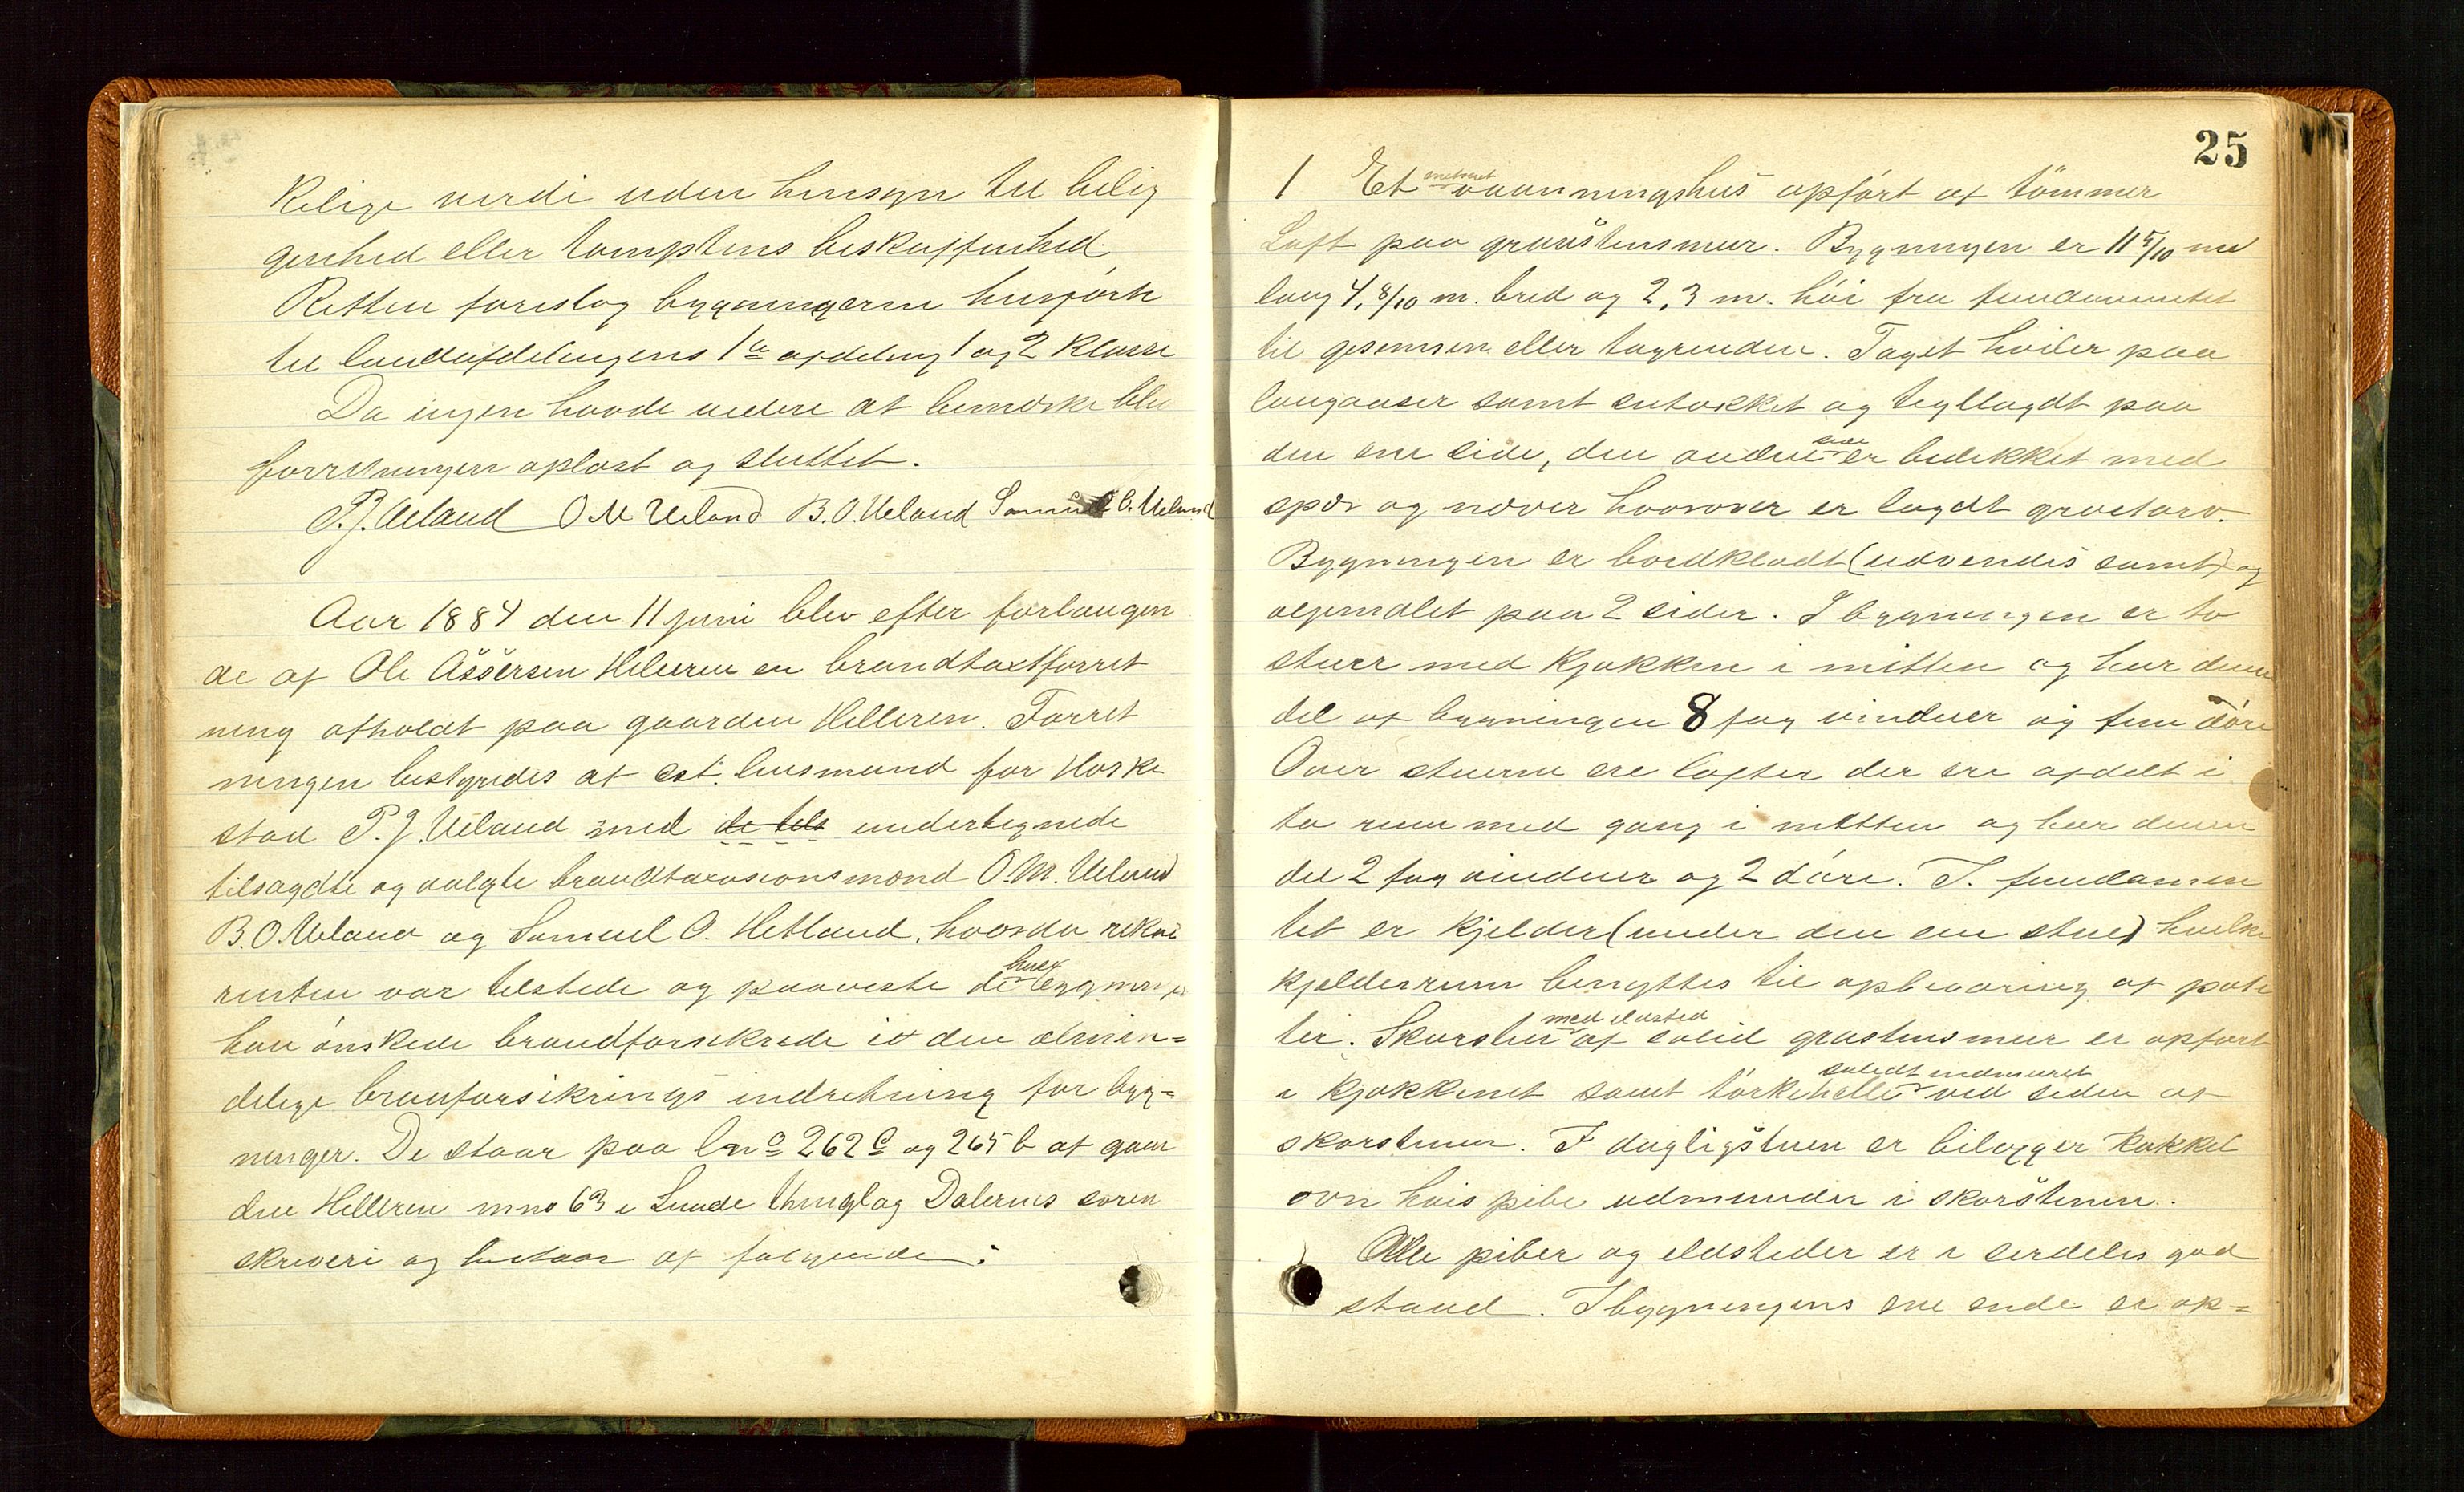 kelige verdi uden hensyn til belig
genhed eller tomptens beskaffenhed
Retten foreslog bygningerne henført
til landafdelingens 1ste afdeling 1 og 2 klasse
Da ingen havde videre at bemærke blev
forretningen oplæst og sluttet.
P.J. Ueland O M Ueland B.O. Ueland Samuel O. Ueland
Aar 1884 den 11 juni blev efter forlangen
de af Ole Assersen Helleren en brandtaxtforret
ning afholdt paa gaarden Helleren. Forret
ningen bestyredes af cst. lensmand for Heske
stad P.J. Ueland med de tils undertegnede
tilsagdte og valgte brandtaxasionsmænd O.M. Ueland
B.O. Ueland og Samuel O. Hetland, hvorda rekvi
renten var tilstede og paaviste de huse bygninger
han ønskede brandforsikrede i den almin=
delige branforsikrings indretning for byg=
ninger. De staar paa lno 262 c og 265 b af gaar
den Helleren mno 63 i Lunde thinglag Dalernes soren
skriveri og bestaar af følgende:
25
1 Et enetaset vaanningshus opført af tømmer
Loft paa graastensmur. Bygningen er 11 5/10 me
lang 4, 8/10 m. bred og 2,3 m. høi fra fundamentet
til gesemsen eller tagrenden. Taget hviler paa
langaaser samt sutækket og tegllagdt paa
den ene side, den anden side er bedekket med
spær og næver hvorover er lagdt grøetorv.
Bygningen er bordklædt (udvendis samt) og
oljemalet paa 2 sider. I bygningen er to
stuer med kjøkken i mitten og har denne
del af bygningen 8 fag vinduer og fem døre
Over stuerne ere lofter der ere afdelt i
to rum med gang i mitten og har denne
del 2 fag vinduer og 2 døre. I fundamen
tet er kjelder (under den ene stue) hvilke
kjelderrum benyttes til opbevaring af pote
ter. Skorsten med ildsted af solid graastensmur er opført
i kjøkkenet samt tørkehelle solidt indmuret ved siden af
skorstenen. I dagligstuen er bilegger kakkel
ovn hvis pibe udmunder i skorstenen.
Alle piber og eldsteder er i serdeles god
stand. I bygningens ene ende er op=